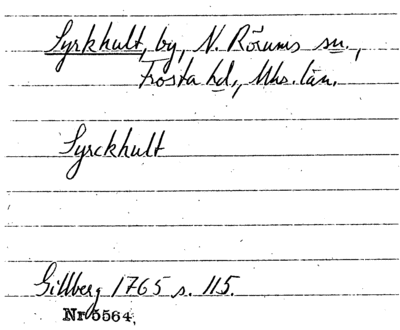 Syrkhult, by, N. Rörums sn.,
Frosta hd., Mhs. län.
Syrckhult
Gillberg 1765 s. 115.
Nr 5564.